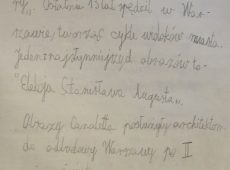 ry". Ostatnie 13 lat spędził w War-
szawie, tworząc cykl widoków miasta.
Jeden z najsłynniejszych obrazów to -
"Elekcja Stanisława Augusta".
Obrazy Canaletta posłużyły architektom
do odbudowy Warszawy po II